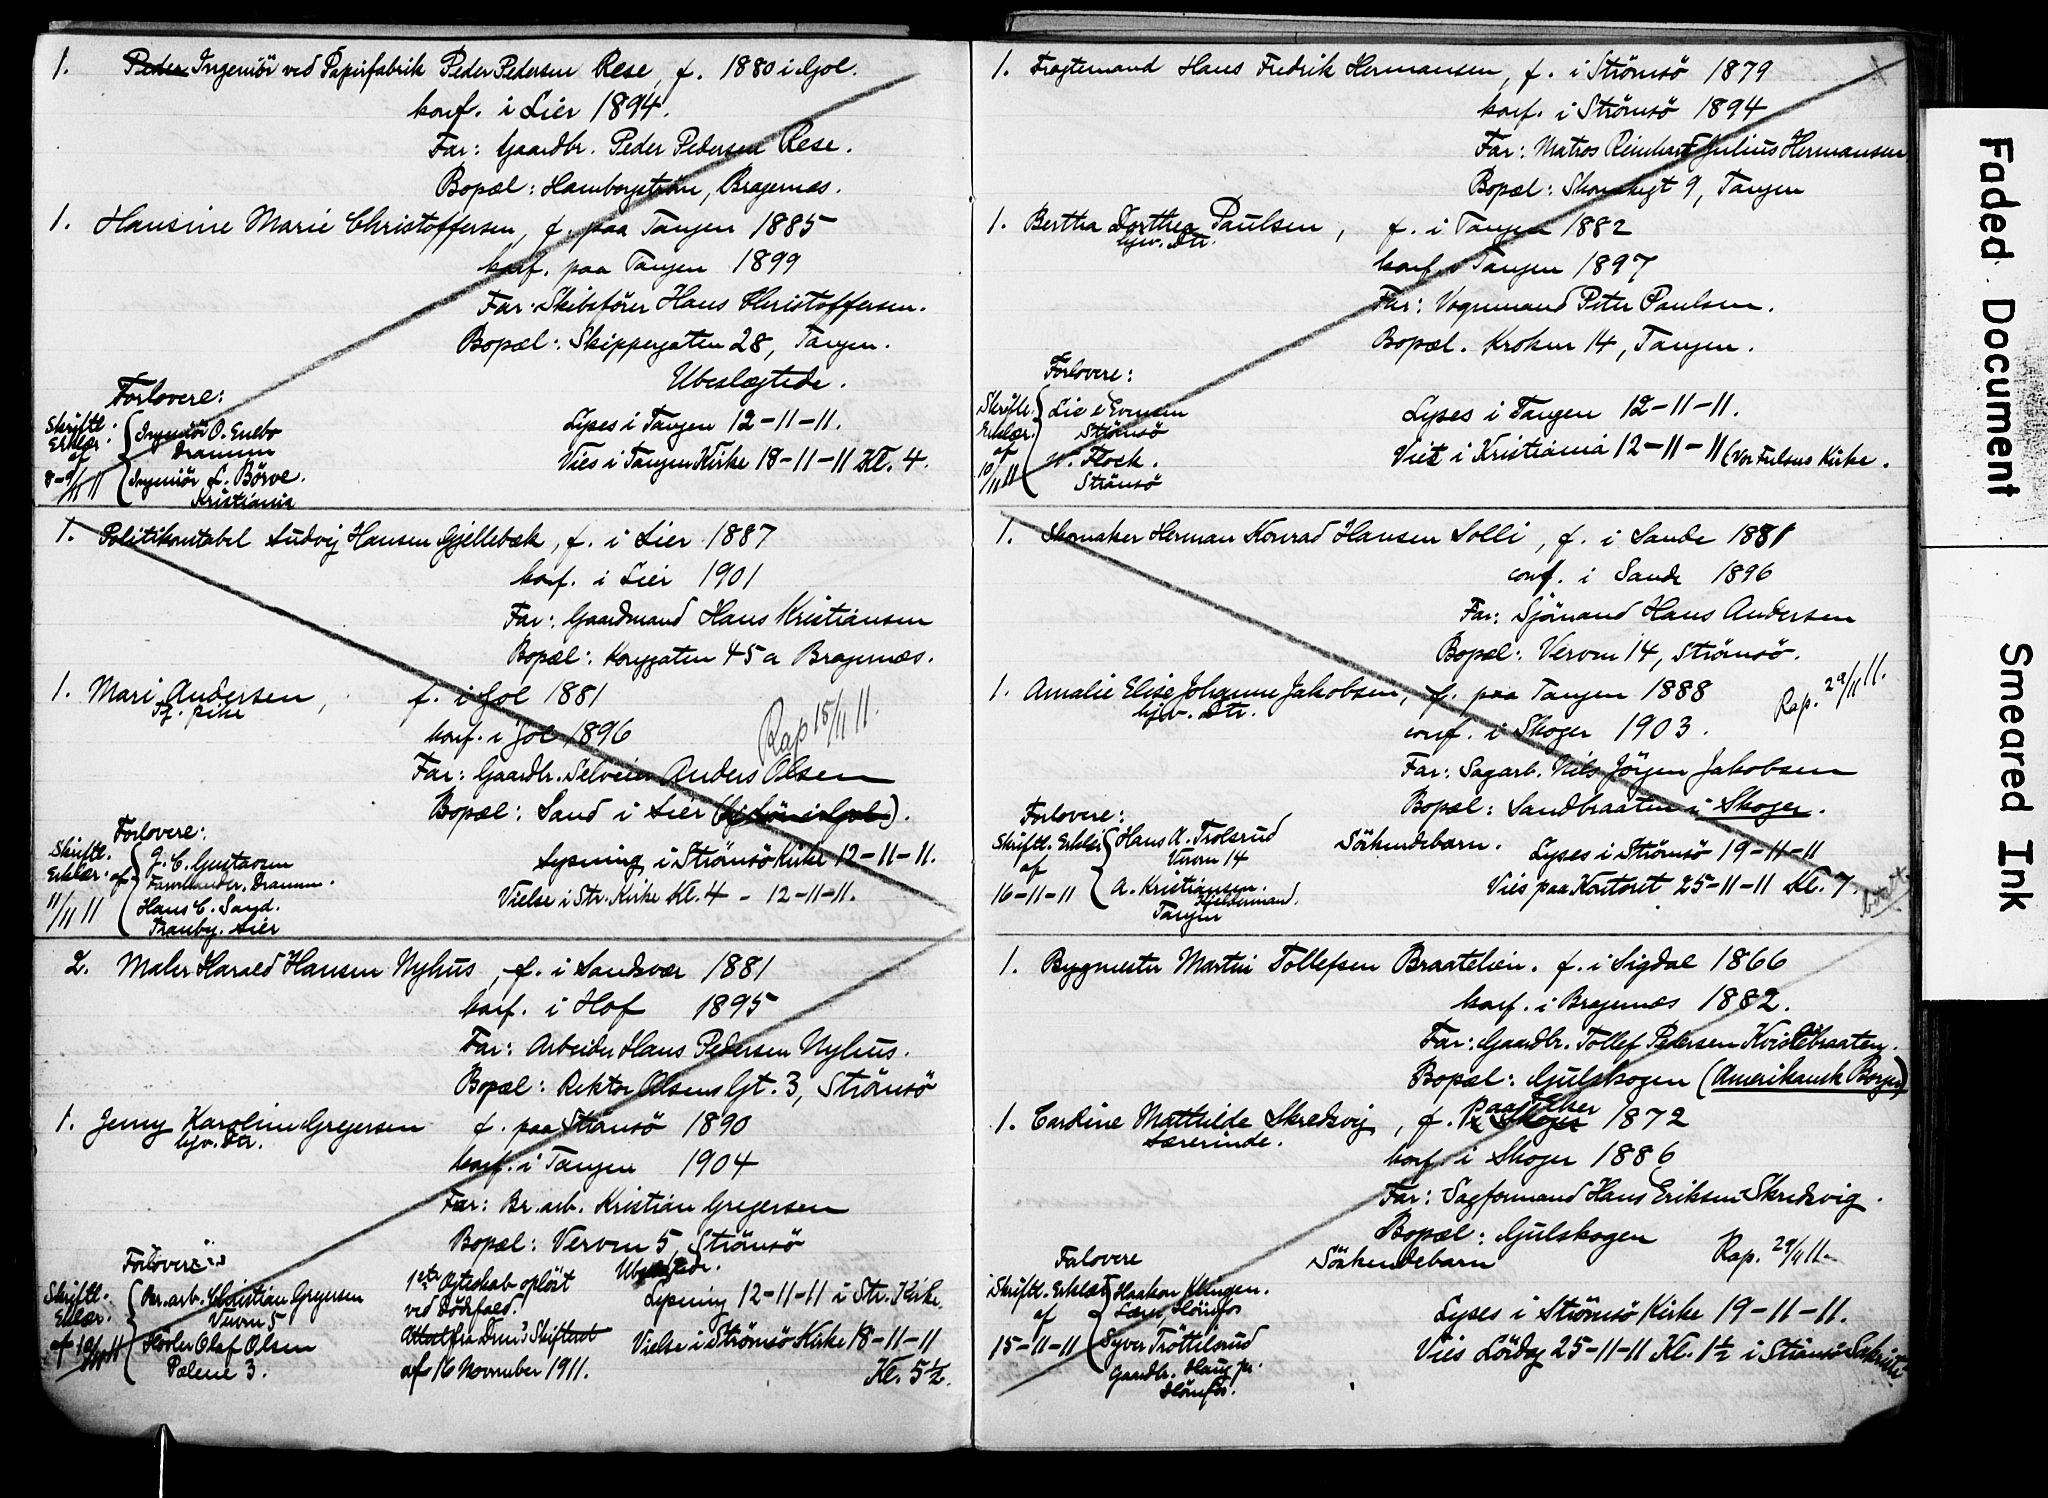 1. Peder Ingeniör ved Papirfabrik Peder Pedersen Rese, f. 1880 i Gol.
konf. i Lier 1894.
Far: Gaardbr. Peder Pedersen Rese.
Bopæl: Hamborgström, Bragernæs.
1. Hansine Marie Christoffersen, f. paa Tangen 1885
konf. paa Tangen 1899
Far: Skibsförer Hans Christoffersen.
Bopæl: Skippergaten 28, Tangen.
Ubeslægtede.
Forlovere:
Skriftl. Erklær. af 8-9/11 11
Ingeniör O. Enebo
Drammen
Ingeniör L. Börve.
Kristiania
Lyses i Tangen 12-11-11.
Vies i Tangen Kirke 18-11-11 Kl. 4.
1. Politikonstabel Ludvig Hansen Gjellebæk, f. i Lier 1887
konf. i Lier 1901
Far: Gaardmand Hans Kristiansen
Bopæl: Konggaten 45 a Bragernæs.
1. Mari Andersen, f. i Gol 1881
Tj. pike
konf. i Gol 1896
Rap 15/11 11.
Far: Gaardbr. Selveier Anders Olsen
Bopæl: Sand i Lier
Forlovere:
Skriftl. Erklær. af 11/11 11
J. C. Gustavsen
Drammen.
Hans C. Sand.
Tranby. Lier
Lysning i Strömsö Kirke 12-11-11.
Vielse i Str. Kirke Kl. 4 - 12-11-11.
2. Maler Harald Hansen Nyhus, f. i Sandsvær 1881
konf. i Hof 1895
Far: Arbeider Hans Pedersen Nyhus.
Bopæl: Rektor Olsens Gt. 3, Strömsö
1. Jenny Karoline Gregersen f. paa Strömsö 1890
hjv. Dtr.
konf. i Tangen 1904
Far: Br. arb. Kristian Gregersen
Bopæl: Verven 5, Strömsö
Forlovere:
Skriftl. Erklær. af
Br. arb. Christian Gregersen
Verven 5
Hövler Olaf Olsen
Pælene 3.
1ste Egteskab oplöst
ved Dödsfald.
Attest fra Drm's Skifteret
af 16 November 1911.
Ubeslægtede.
Lysning 12-11-11 i Str. Kirke.
Vielse i Strömsö Kirke 18-11-11
Kl. 5½.
1. Fragtemand Hans Fredrik Hermansen, f. i Strömsö 1879
konf. i Strömsö 1894
Far: Matros Reinhart Julius Hermansen
Bopæl: 9, Tangen
1. Bertha Dorthea Paulsen, f. i Tangen 1882
hjv. Dtr.
konf. i Tangen 1897
Far: Vognmand Peter Paulsen.
Bopæl. Kroken 14, Tangen.
Forlovere:
Skriftl. Erklær. af 10/11 11
Lie Evensen
Strömsö
N. Flock.
Strömsö
Lyses i Tangen 12-11-11.
Viet i Kristiania 12-11-11 (Vor Frelsers Kirke.
1. Skomaker Herman Konrad Hansen Solli, f. i Sande 1881
conf. i Sande 1896
Far: Sjömand Hans Andersen
Bopæl: Verven 14, Strömsö.
1. Amalie Elise Johanne Jakobsen, f. paa Tangen 1888
hjv. Dtr.
Rap. 29/11 11.
conf. i Skoger 1903.
Far: Sagarb. Nils Jörgen Jakobsen
Bopæl: Sandbraaten i Skoger.
Forlovere:
Skriftl. Erklær. af 16-11-11
Hans A. Trolsrud
Verven 14
A. Kristiansen.
Kjeldermand.
Tangen
Söskendebarn.
Lyses i Strömsö 19-11-11
Vies paa Kontoret 25-11-11 Kl. 7.
1. Bygmester Martin Tollefsen Braatelien. f. i Sigdal 1866
konf. i Bragernæs 1882.
Far: Gaardbr. Tollef Pedersen Kvislebraaten.
Bopæl: Gulskogen (Amerikansk Borger)
1. Cardine Mathilde Skredsvig, f. paa Eker 1872
Lærerinde.
konf. i Skoger 1886
Far: Sagformand Hans Eriksen Skredsvig.
Bopæl: Gulskogen
Söskendebarn
Rap. 29/11 11.
Forlovere
Skriftl. Erklær. af 15-11-11
Haakon Klingen.
Lærer, Hönefos
Syver Tröttelsrud
Gaardbr. Haug pr.
Hönefos.
Lyses i Strömsö Kirke 19-11-11.
Vies Lördag 25-11-11 Kl. 1½ i Strömsö Sakristi.
Faded Document
Smeared Ink